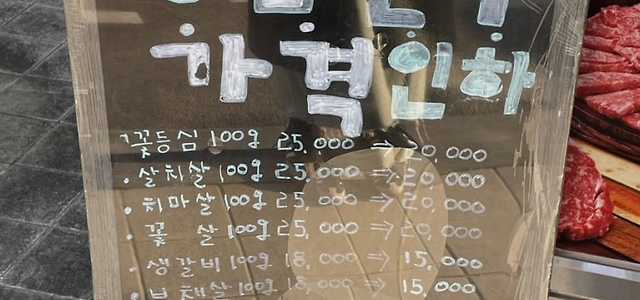 가격인하
꽃등심 100g 25,000 ⇒ 20,000
· 살치살 100g 25,000 ⇒ 20,000
· 치마살 100g 25,000 ⇒ 20,000
· 꽃 살 100g 25,000 ⇒ 20,000
· 생갈비 100g 18,000 ⇒ 15,000
· 부채살 100g 18,000 ⇒ 15,000